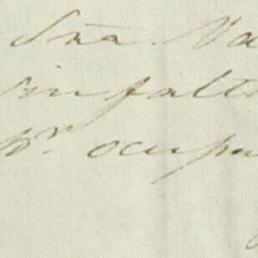 Sña. Na
sinfalt
pr. ocup